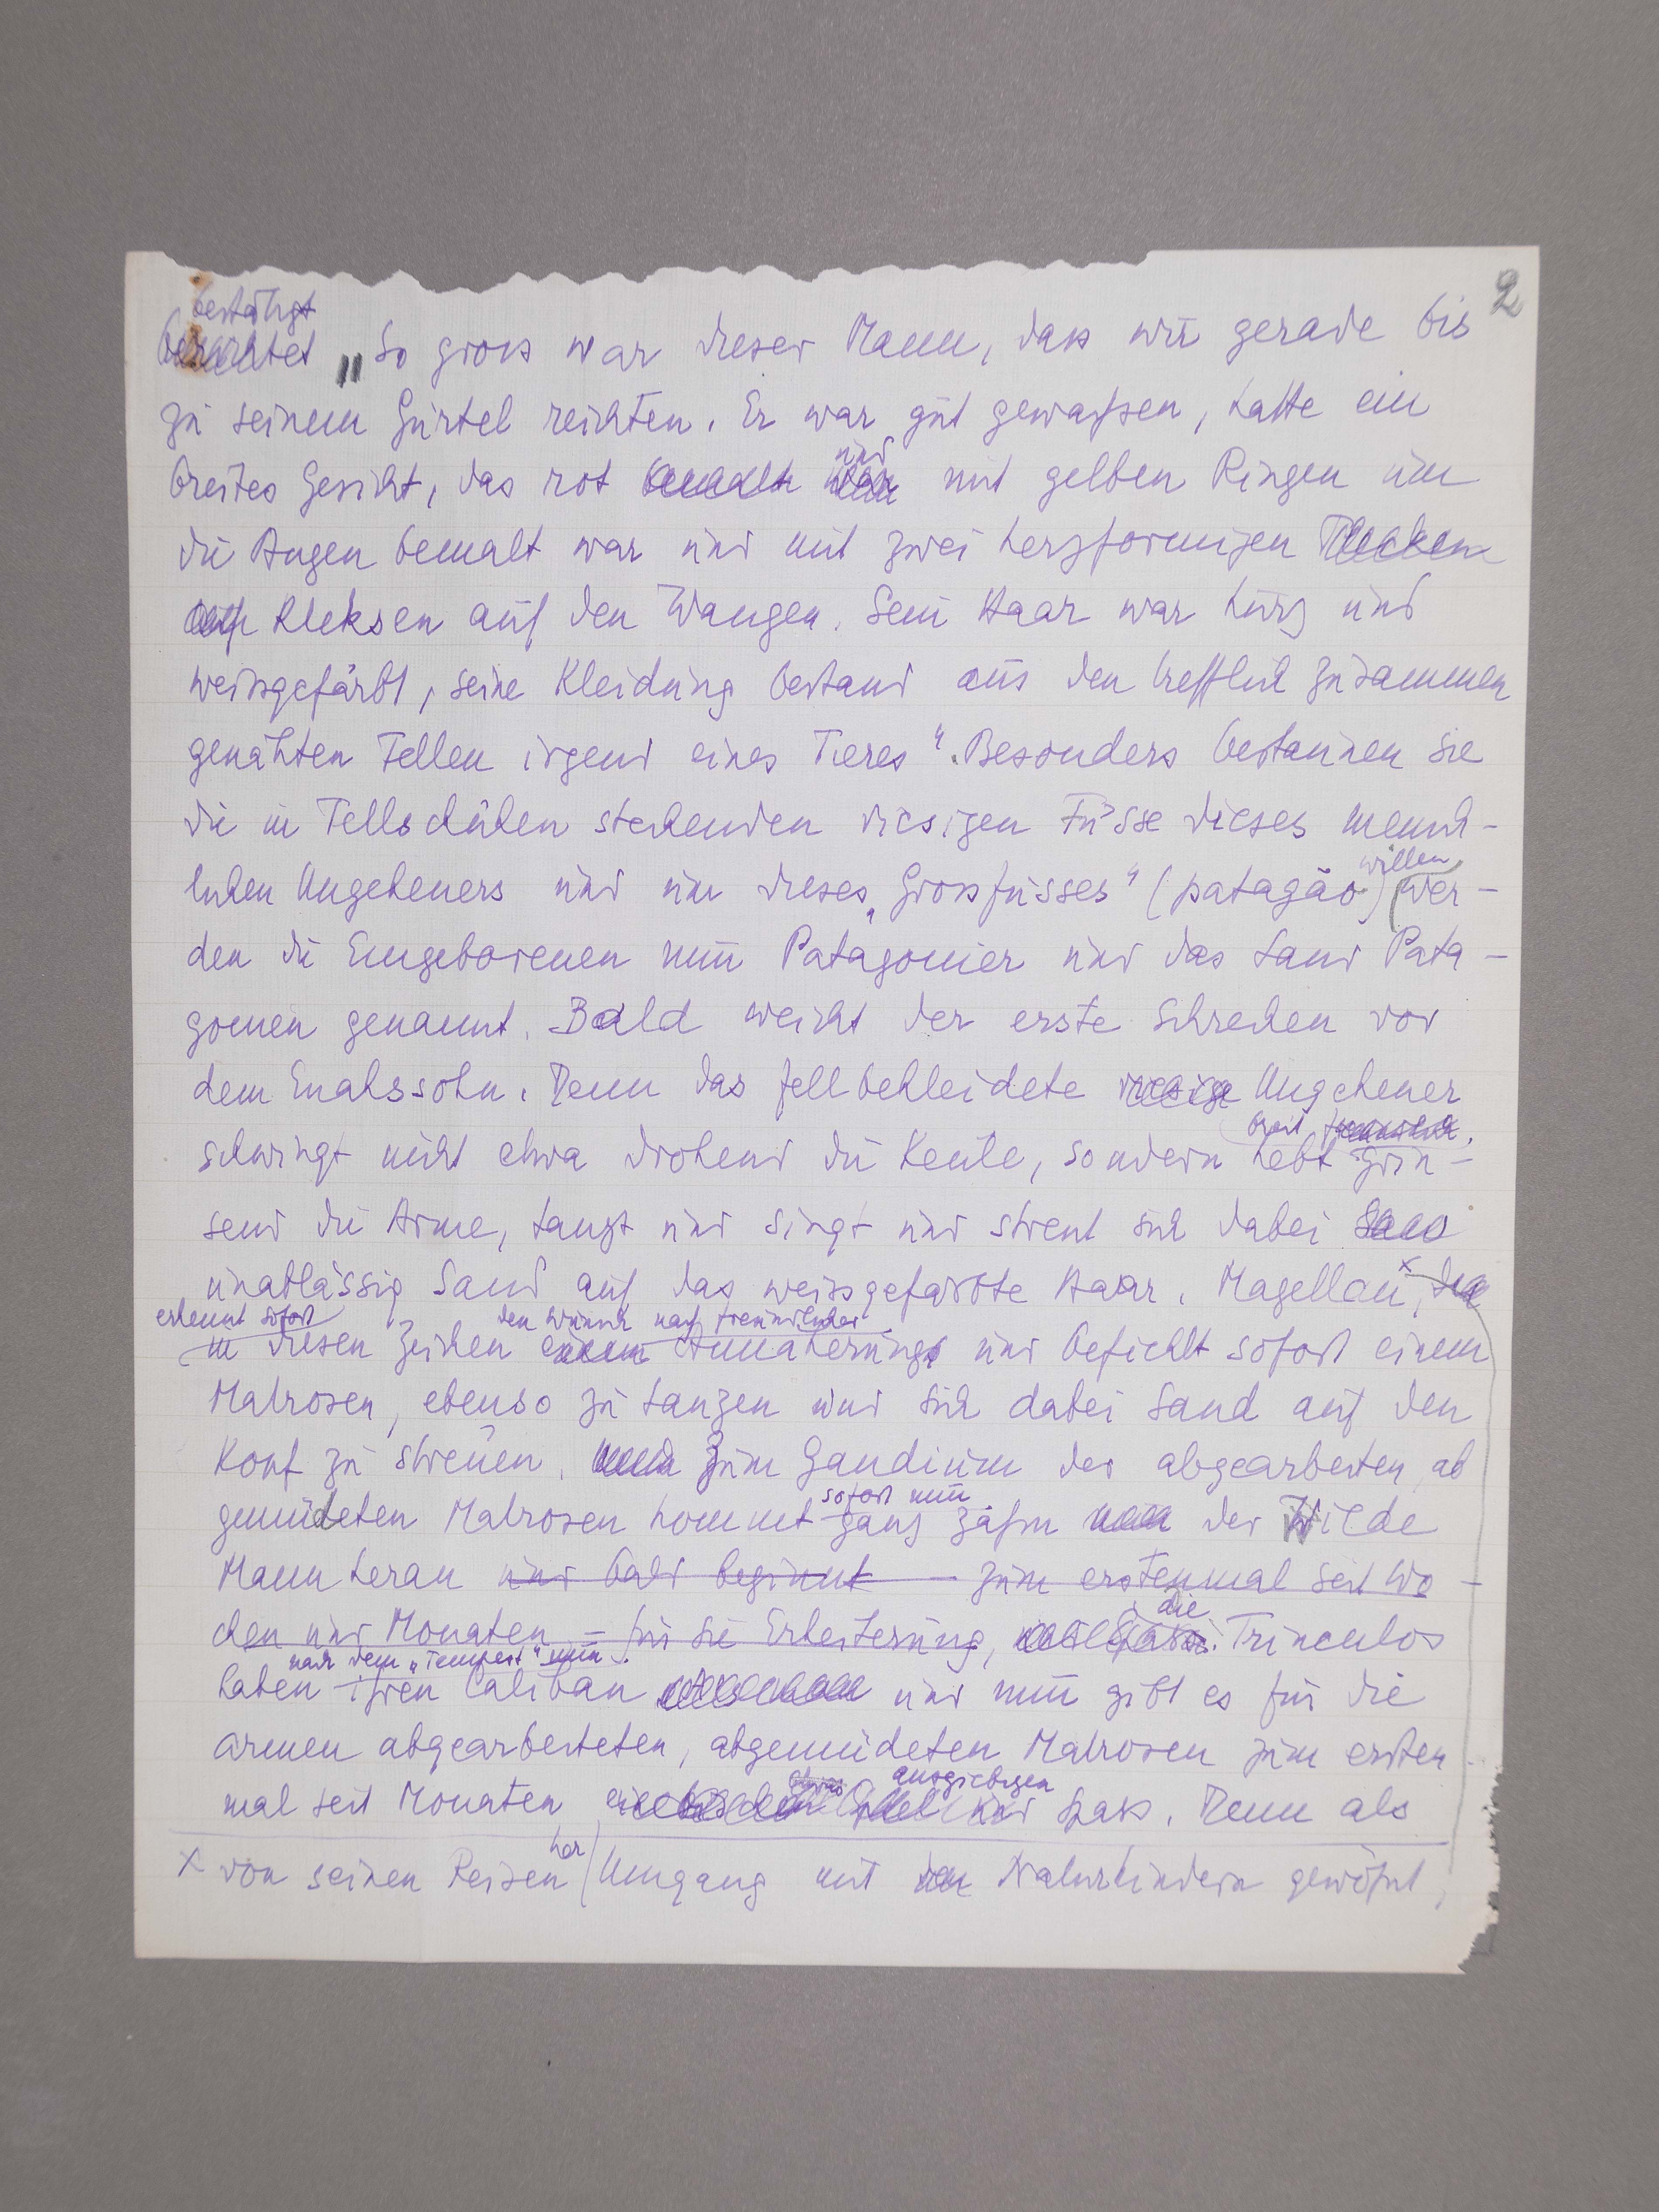 2
bestätigt
berichtet „So gross war dieser Mann, dass wir gerade bis
zu seinem Gürtel reichten. Er war gut gewachsen, hatte ein
und
breites Gesicht, das rot bemalt war mit gelben Ringen um
die Augen bemalt war und mit zwei herzförmigen Flecken
auf Kleksen auf den Wangen. Sein Haar war kurz und
weissgefärbt, seine Kleidung bestand aus den trefflich zusammen
genähten Fellen irgend eines Tieres“. Besonders bestaunen sie
die in Fellschuhen steckenden riesigen Füsse dieses mensch-
willen
lichen Ungeheuers und um dieses „Grossfusses“ (patagão) wer-
den die Eingeborenen nun Patagonier und das Land Pata-
gonien genannt. Bald weicht der erste Schrecken vor
dem Enakssohn. Denn das fellbekleidete riesige Ungeheuer
breit
schwingt nicht etwa drohend die Keule, sondern hebt grin-
send die Arme, tanzt und singt und streut sich dabei
unablässig Sand auf das weissgefärbte Haar. Magellan x, der
erkennt sofort den Wunsch nach freundlicher
in diesen Zeichen einen Annäherung und befiehlt sofort einem
Matrosen, ebenso zu tanzen und sich dabei Sand auf den
Kopf zu streuen. Und Zum Gaudium der abgearbeiten, ab
sofort nun
gemüdeten Matrosen kommt ganz zahm der Wilde
Mann heran und bald beginnt – zum erstenmal seit Wo-
die
chen und Monaten – für sie Erheiterung, Trinculos
nach dem „Tempest“ nun
haben ihren Caliban und nun gibt es für die
armen abgearbeiteten, abgemüdeten Matrosen zum ersten-
ausgiebigen
mal seit Monaten ein bischen und Spass. Denn als
her
x von seinen Reisen Umgang mit den Naturkindern gewöhnt,